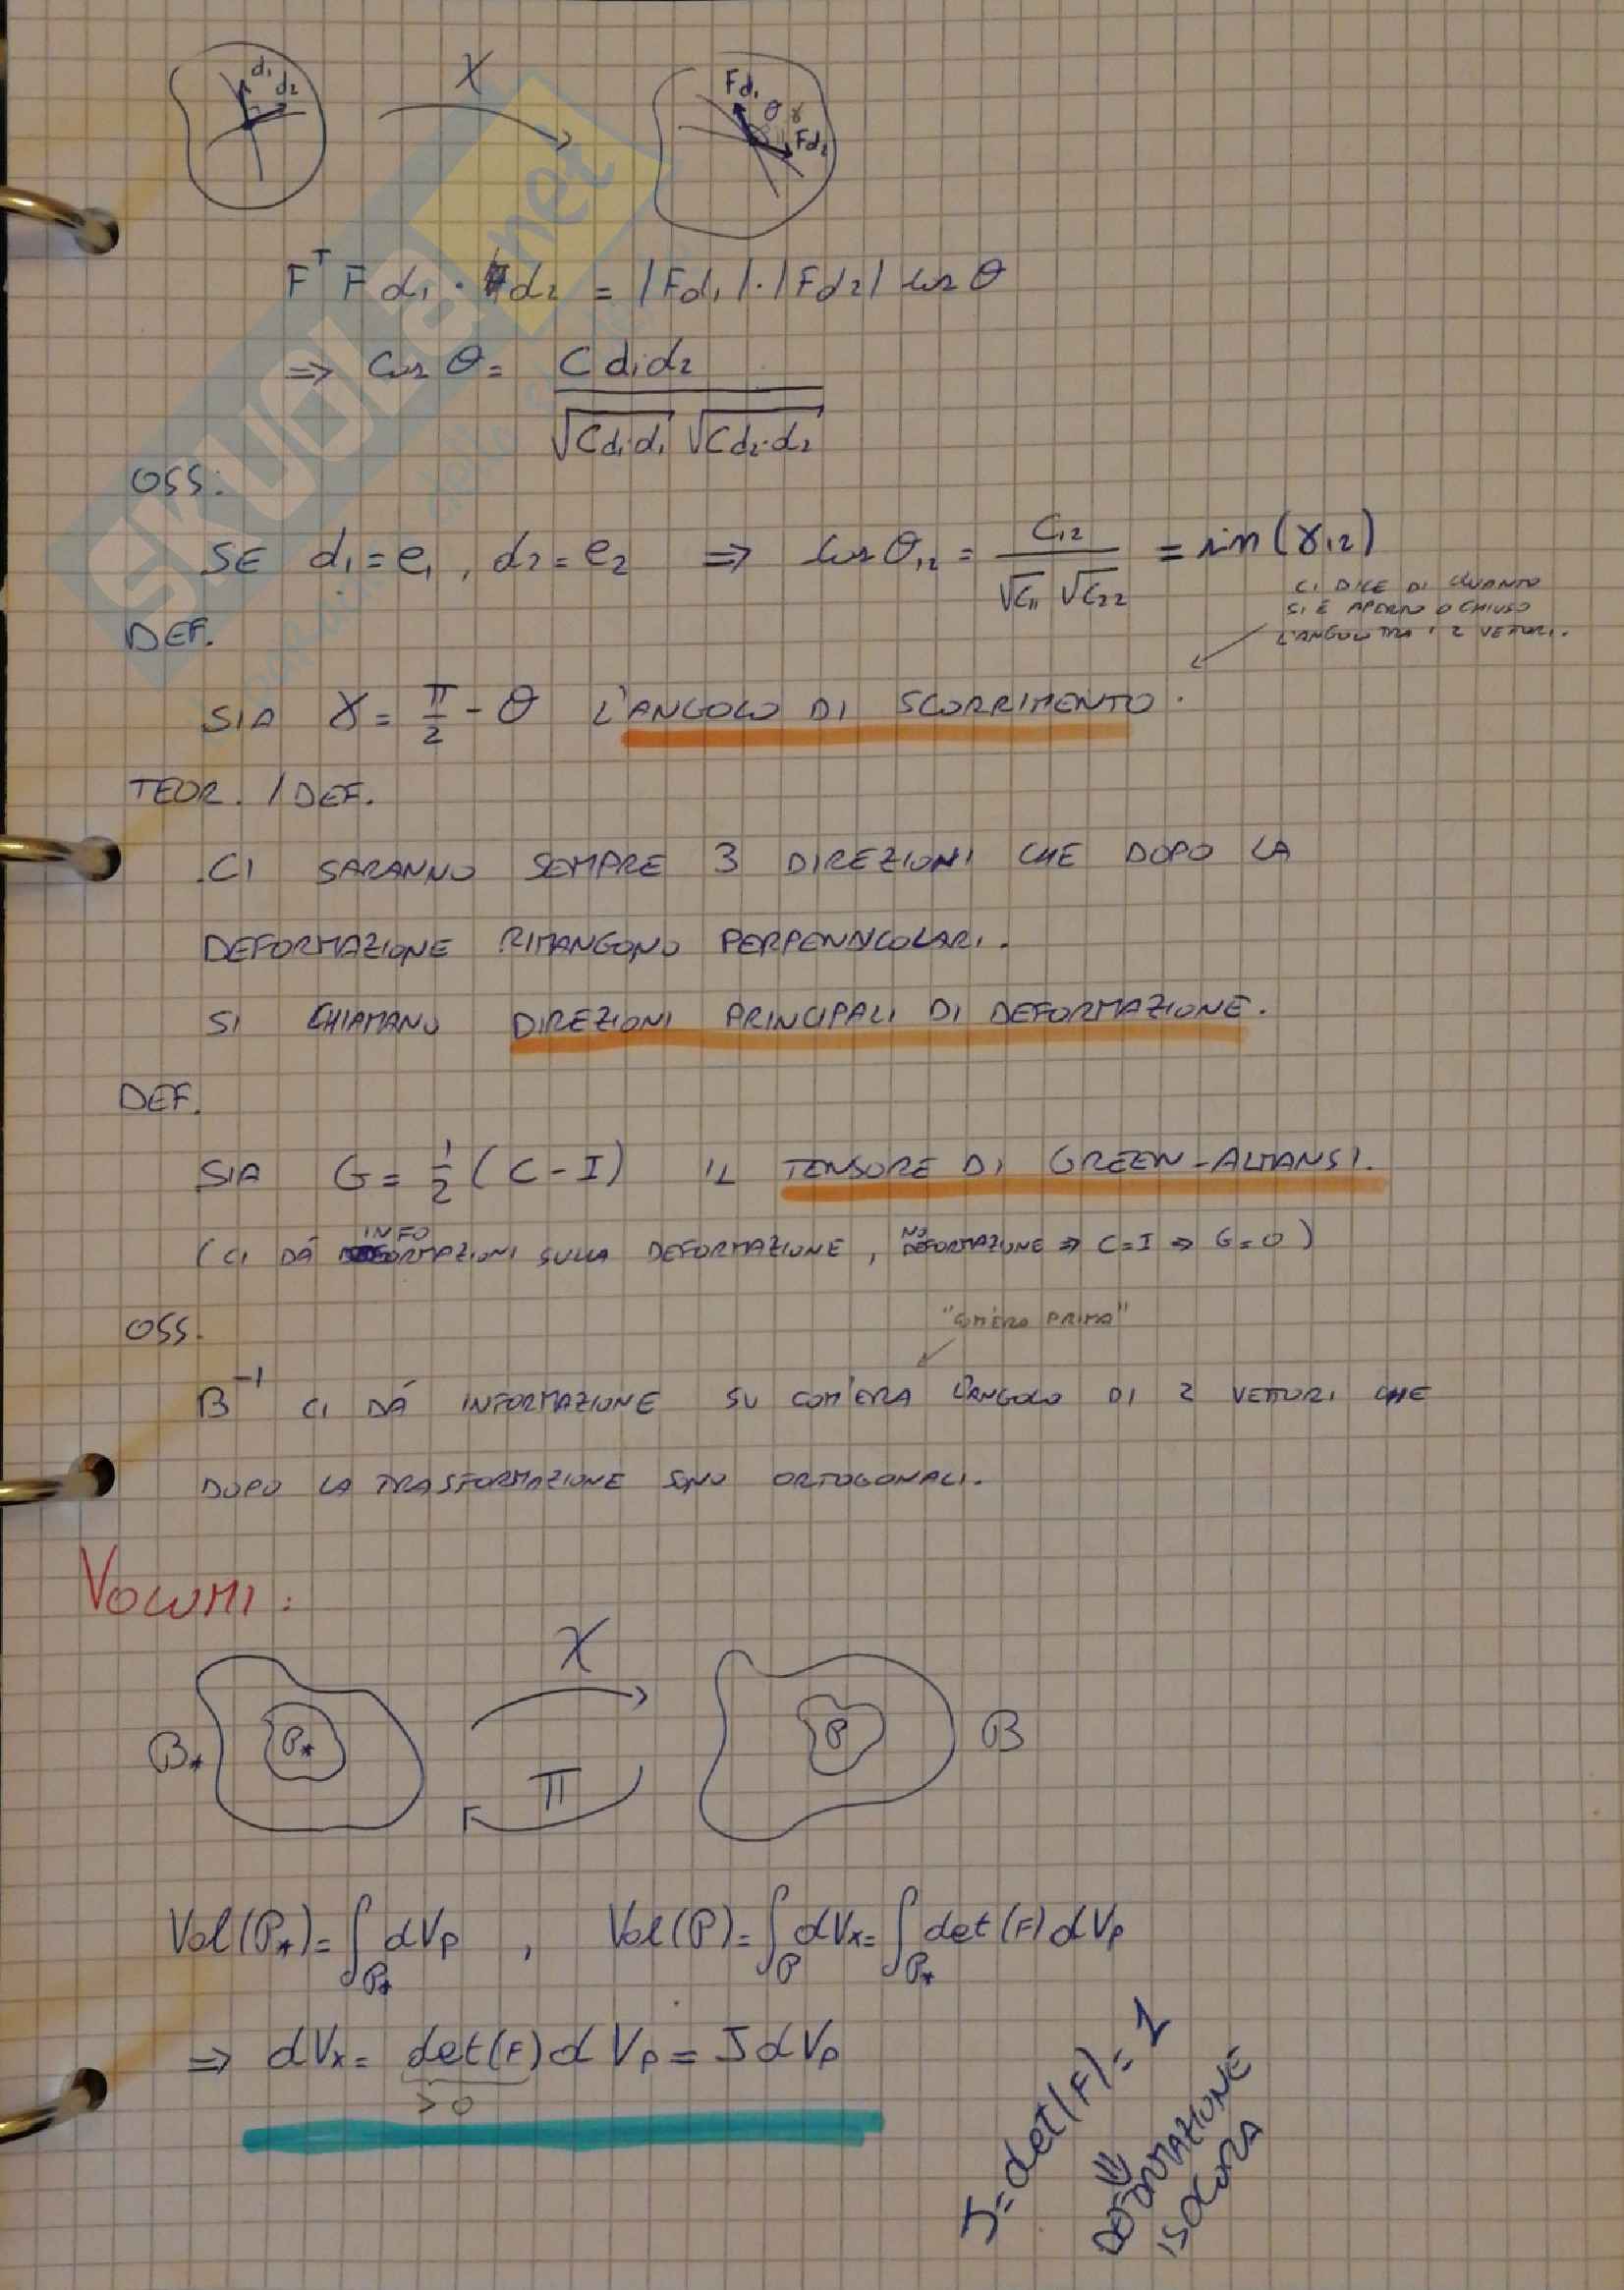 d₁
d₂
χ
Fd₁
θ γ
Fd₂
FᵀF d₁ · d₂ = |Fd₁|·|Fd₂| cos θ
⇒ cos θ = C d₁d₂ / √Cd₁·d₁ √Cd₂·d₂
OSS:
SE d₁=e₁, d₂=e₂ ⇒ cos θ₁₂ = C₁₂ / √C₁₁ √C₂₂ = sin(γ₁₂)
CI DICE DI QUANTO
SI È APERTO O CHIUSO
L'ANGOLO TRA I 2 VETTORI.
DEF.
SIA γ = π/2 - θ L'ANGOLO DI SCORRIMENTO.
TEOR. / DEF.
CI SARANNO SEMPRE 3 DIREZIONI CHE DOPO LA
DEFORMAZIONE RIMANGONO PERPENDICOLARI.
SI CHIAMANO DIREZIONI PRINCIPALI DI DEFORMAZIONE.
DEF.
SIA G = 1/2 (C - I) IL TENSORE DI GREEN-ALMANSI.
(CI DÁ INFORMAZIONI SULLA DEFORMAZIONE, NO DEFORMAZIONE ⇒ C=I ⇒ G=0)
OSS.
"COM'ERO PRIMA"
B⁻¹ CI DÁ INFORMAZIONE SU COM'ERA L'ANGOLO DI 2 VETTORI CHE
DOPO LA TRASFORMAZIONE SONO ORTOGONALI.
VOLUMI:
χ
B* P* P B
π
Vol(P*) = ∫P* dVp , Vol(P) = ∫P dVx = ∫P* det(F) dVp
⇒ dVx = det(F) dVp = J dVp
> 0
J = det(F) = 1
⇓
DEFORMAZIONE
ISOCORA
SKUOLA.net